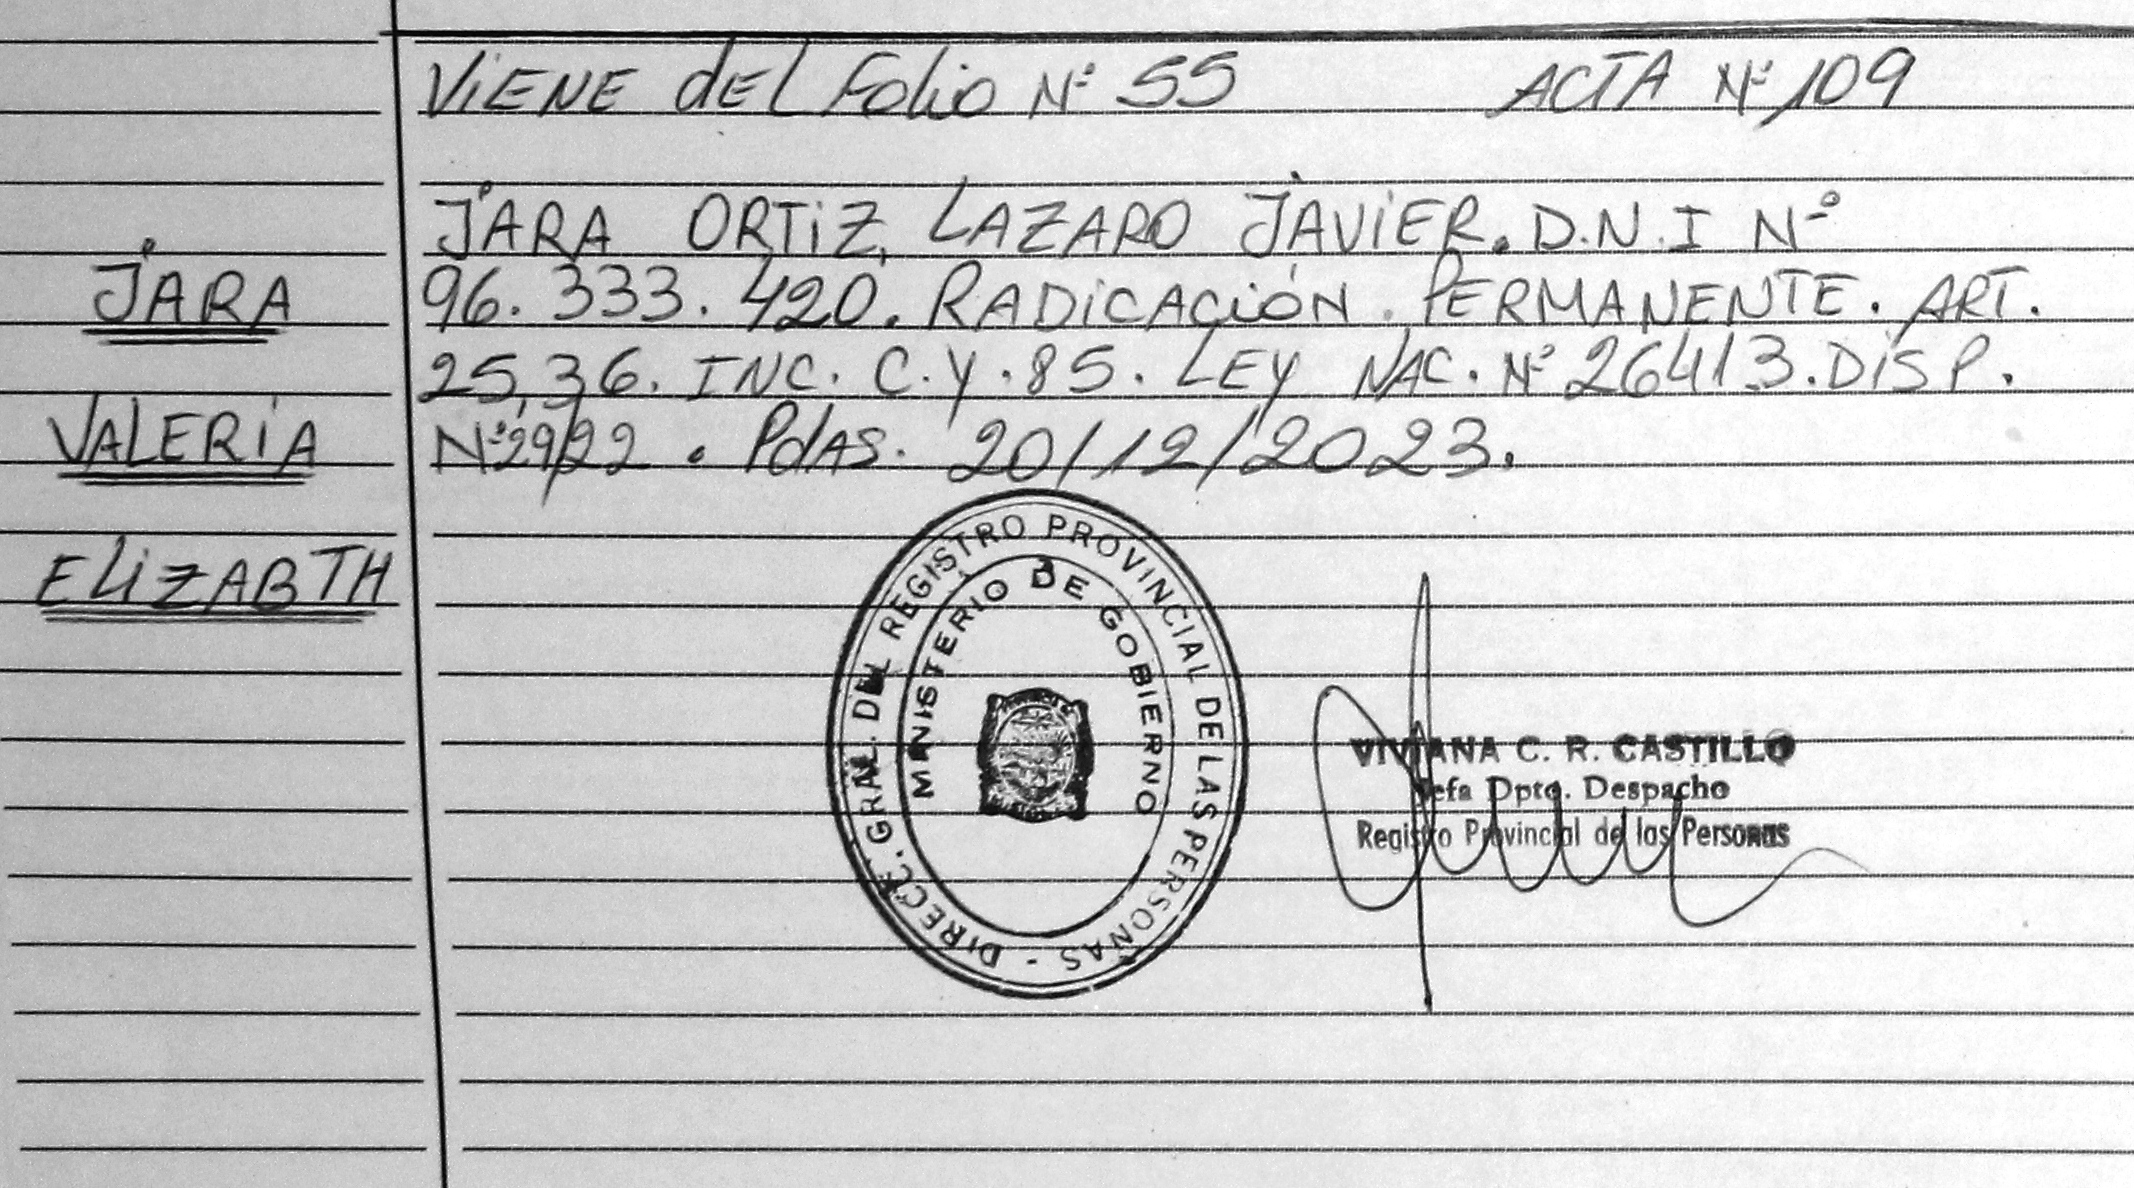 ViENE dEL Folio Nº 55 ACTA Nº 109
JARA ORTiZ, LAZARO JAViER. D.N.I Nº
96.333.420. RADiCACiÓN. PERMANENTE. ART.
25,36. INC. C.Y.85. LEY NAC. Nº 26413. DiSP.
Nº29/22. PdAS. 20/12/2023.
JARA
VALERiA
ELiZABTH
DIRECC. GRAL. DEL REGISTRO PROVINCIAL DE LAS PERSONAS -
MINISTERIO DE GOBIERNO
VIVIANA C. R. CASTILLO
Jefa Dpto. Despacho
Registro Provincial de las Personas